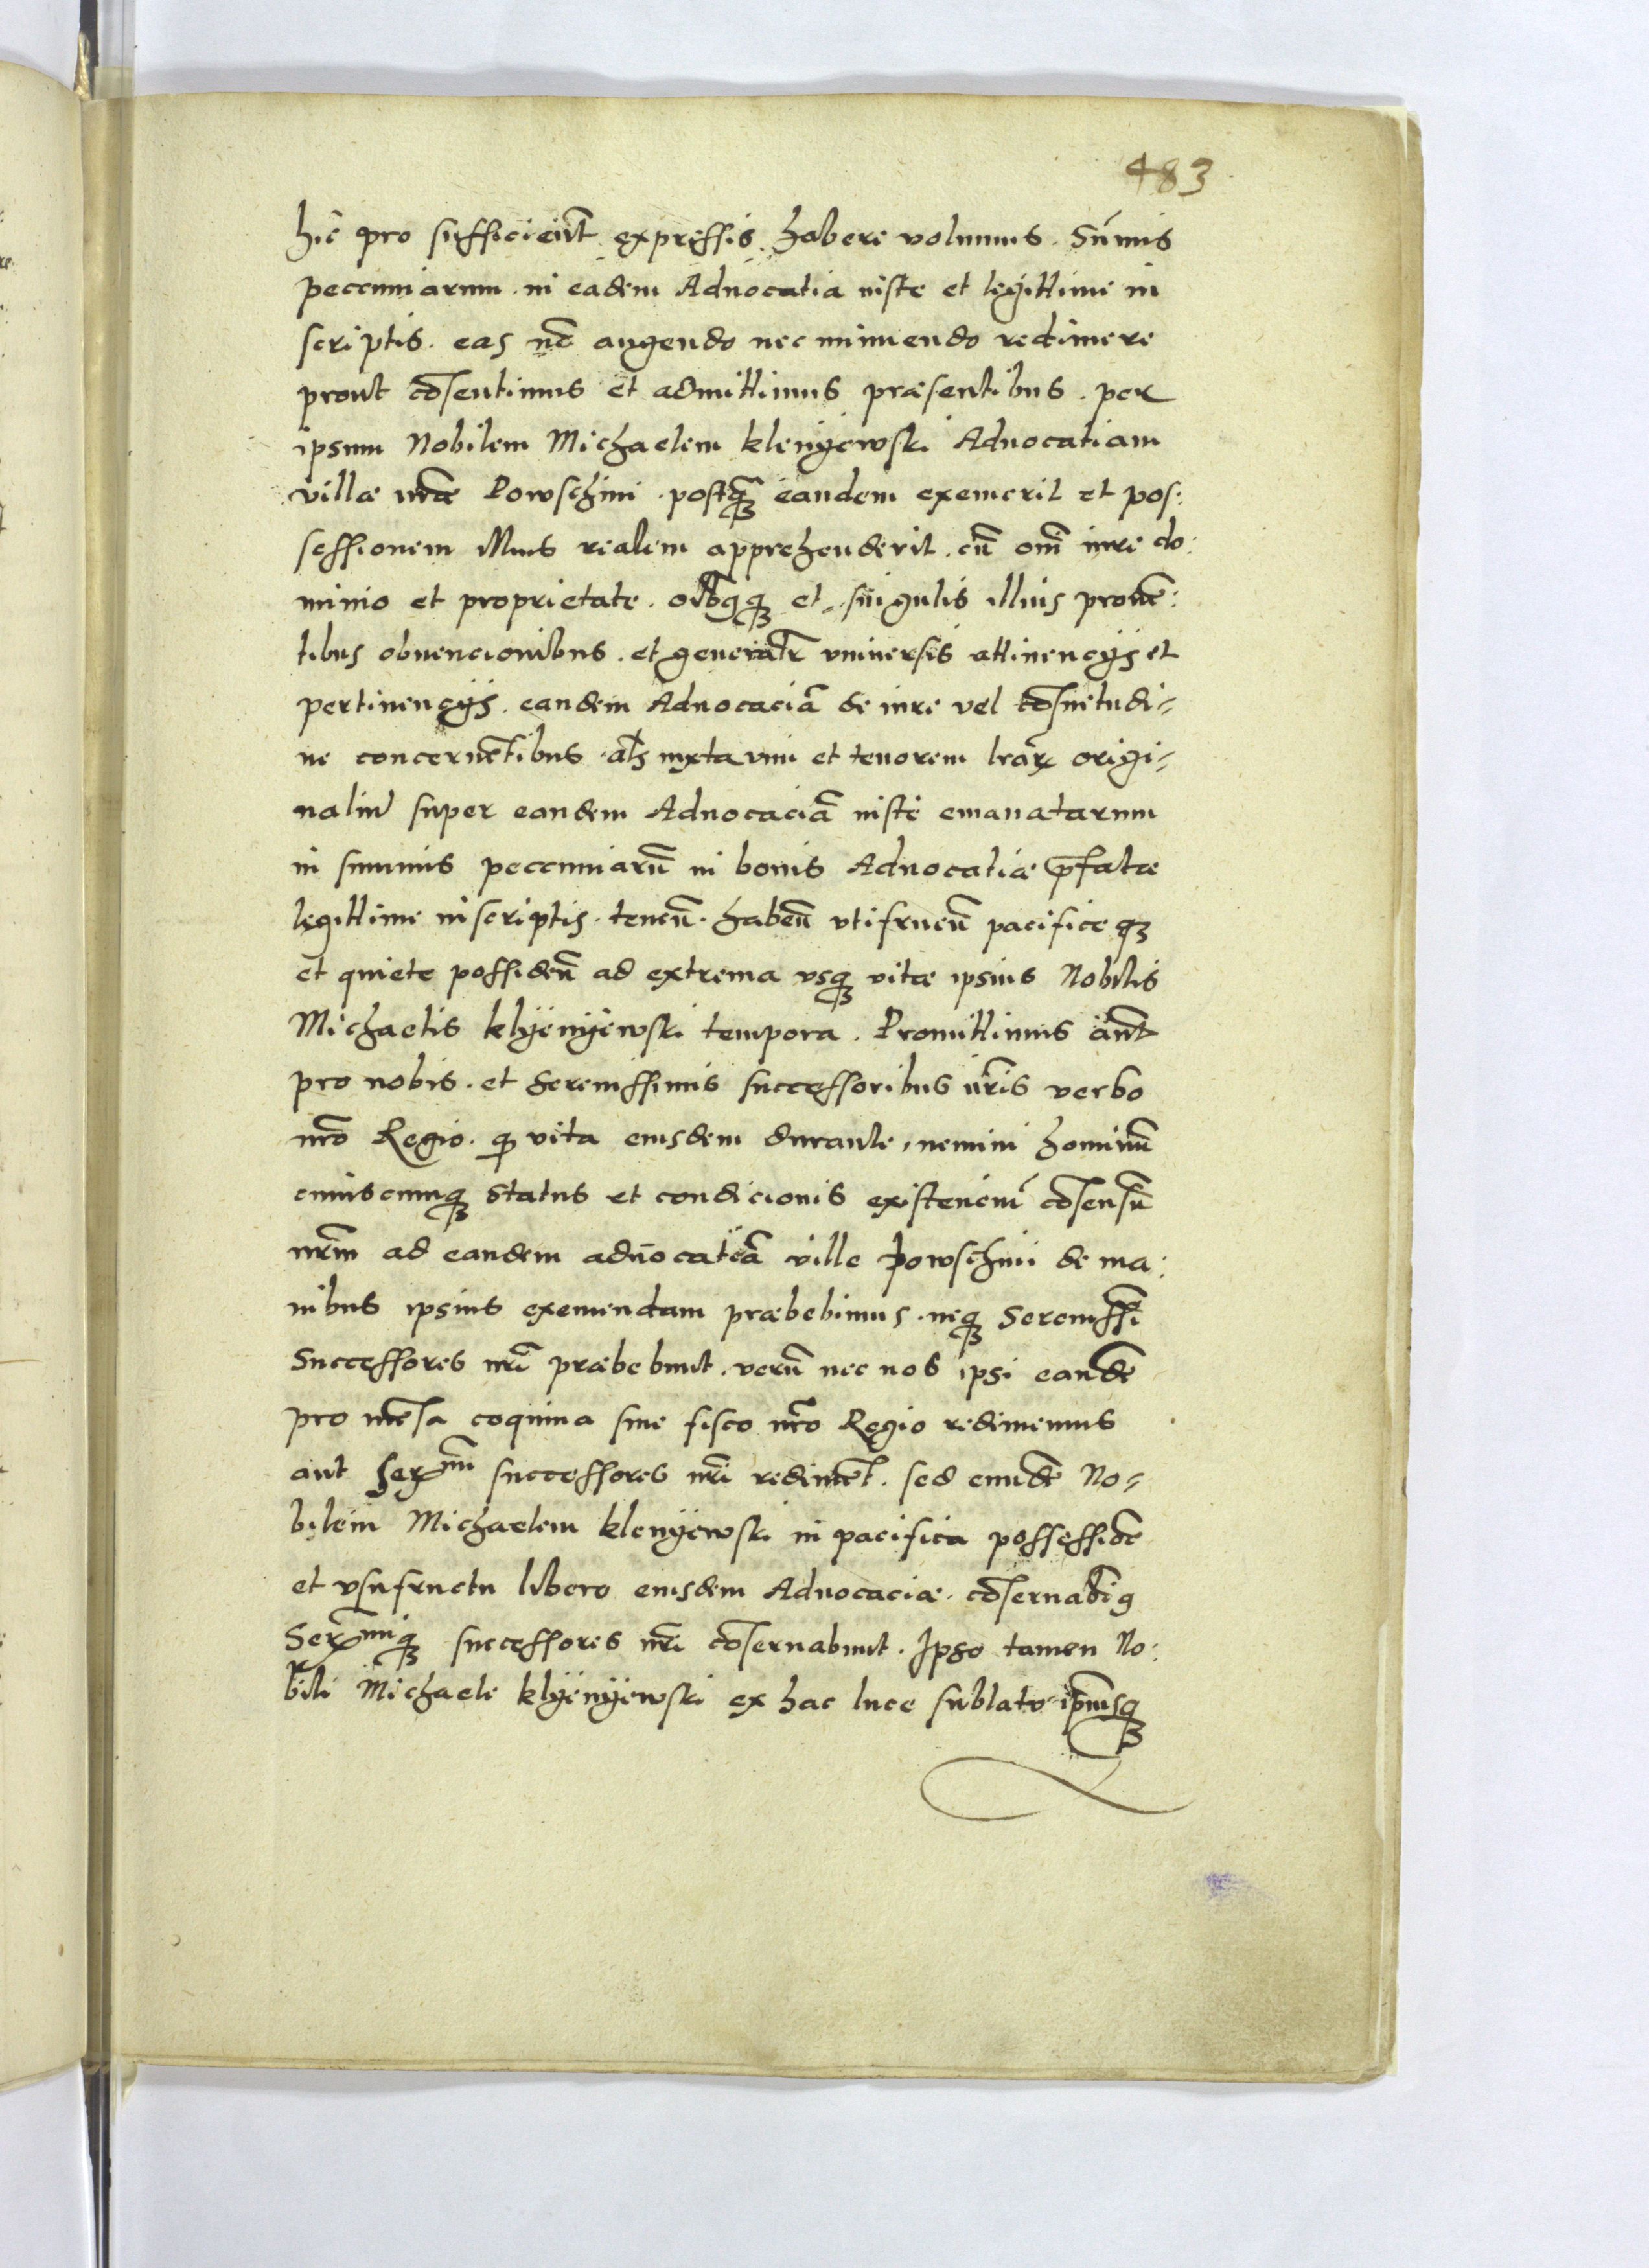 483
hic pro sufficieñt expressis habere volumus. Sũmis
peccuniarum. in eadem Aduocatia iuste et legittime in
scriptis. eas nõ augendo nec minuendo redimere
prout cõsentimus et admittimus præsentibus. per
ipsum Nobilem Michaelem klenÿewski Aduocatiam
villæ nr̃æ Powschini. postq̃ꝫ eandem exemerit et pos:
sessionem illius realem apprehenderit. cũ om̃i iure do:
minio et proprietate. oĩbꝰqꝫ et singulis illius prouẽ:
tibus obuencionibus. et generalr̃ vniuersis attinencijs et
pertinencijs. eandem Aduocaciã de iure vel cõsuetudi-
ne concernẽtibus. al̃s iuxta vim et tenorem lr̃aꝝ origi-
naliũ super eandem Aduocaciã iuste emanatarum
in summis peccuniarũ in bonis Aduocatiæ p̃fatæ
legittime inscriptis. teneñ. habeñ vtifrueñ pacificeqꝫ
et quiete possideñ ad extrema vsqꝫ vitæ ipsius Nobilis
Michaelis klÿenÿewski tempora. Promittimus aũt
pro nobis. et Serenissimis successoribus nr̃is verbo
nr̃o Regio. qꝫ vita eiusdem durante, nemini hominũ
cuiuscumqꝫ status et condicionis existenciũ cõsensũ
nr̃m ad eandem aduocatiã ville Powschini de ma:
nibus ipsius exemendam præbebimus. neqꝫ Serenissĩ
Successores nr̃i præbebunt. verũ nec nos ipsi eandẽ
pro mẽsa coquina siue fisco nr̃o Regio redimemus
aut Serᵐⁱ successores nr̃i redimẽt. sed eundẽ No-
bilem Michaelem klenÿewski in pacifica possessiõe
et vsufructu libero eiusdem Aduocaciæ. cõseruabimꝰ
Serᵐⁱqꝫ successores nr̃i cõseruabunt. Ipso tamen No:
bili Michaele klÿenÿewski ex hac luce sublato ip̃iusqꝫ